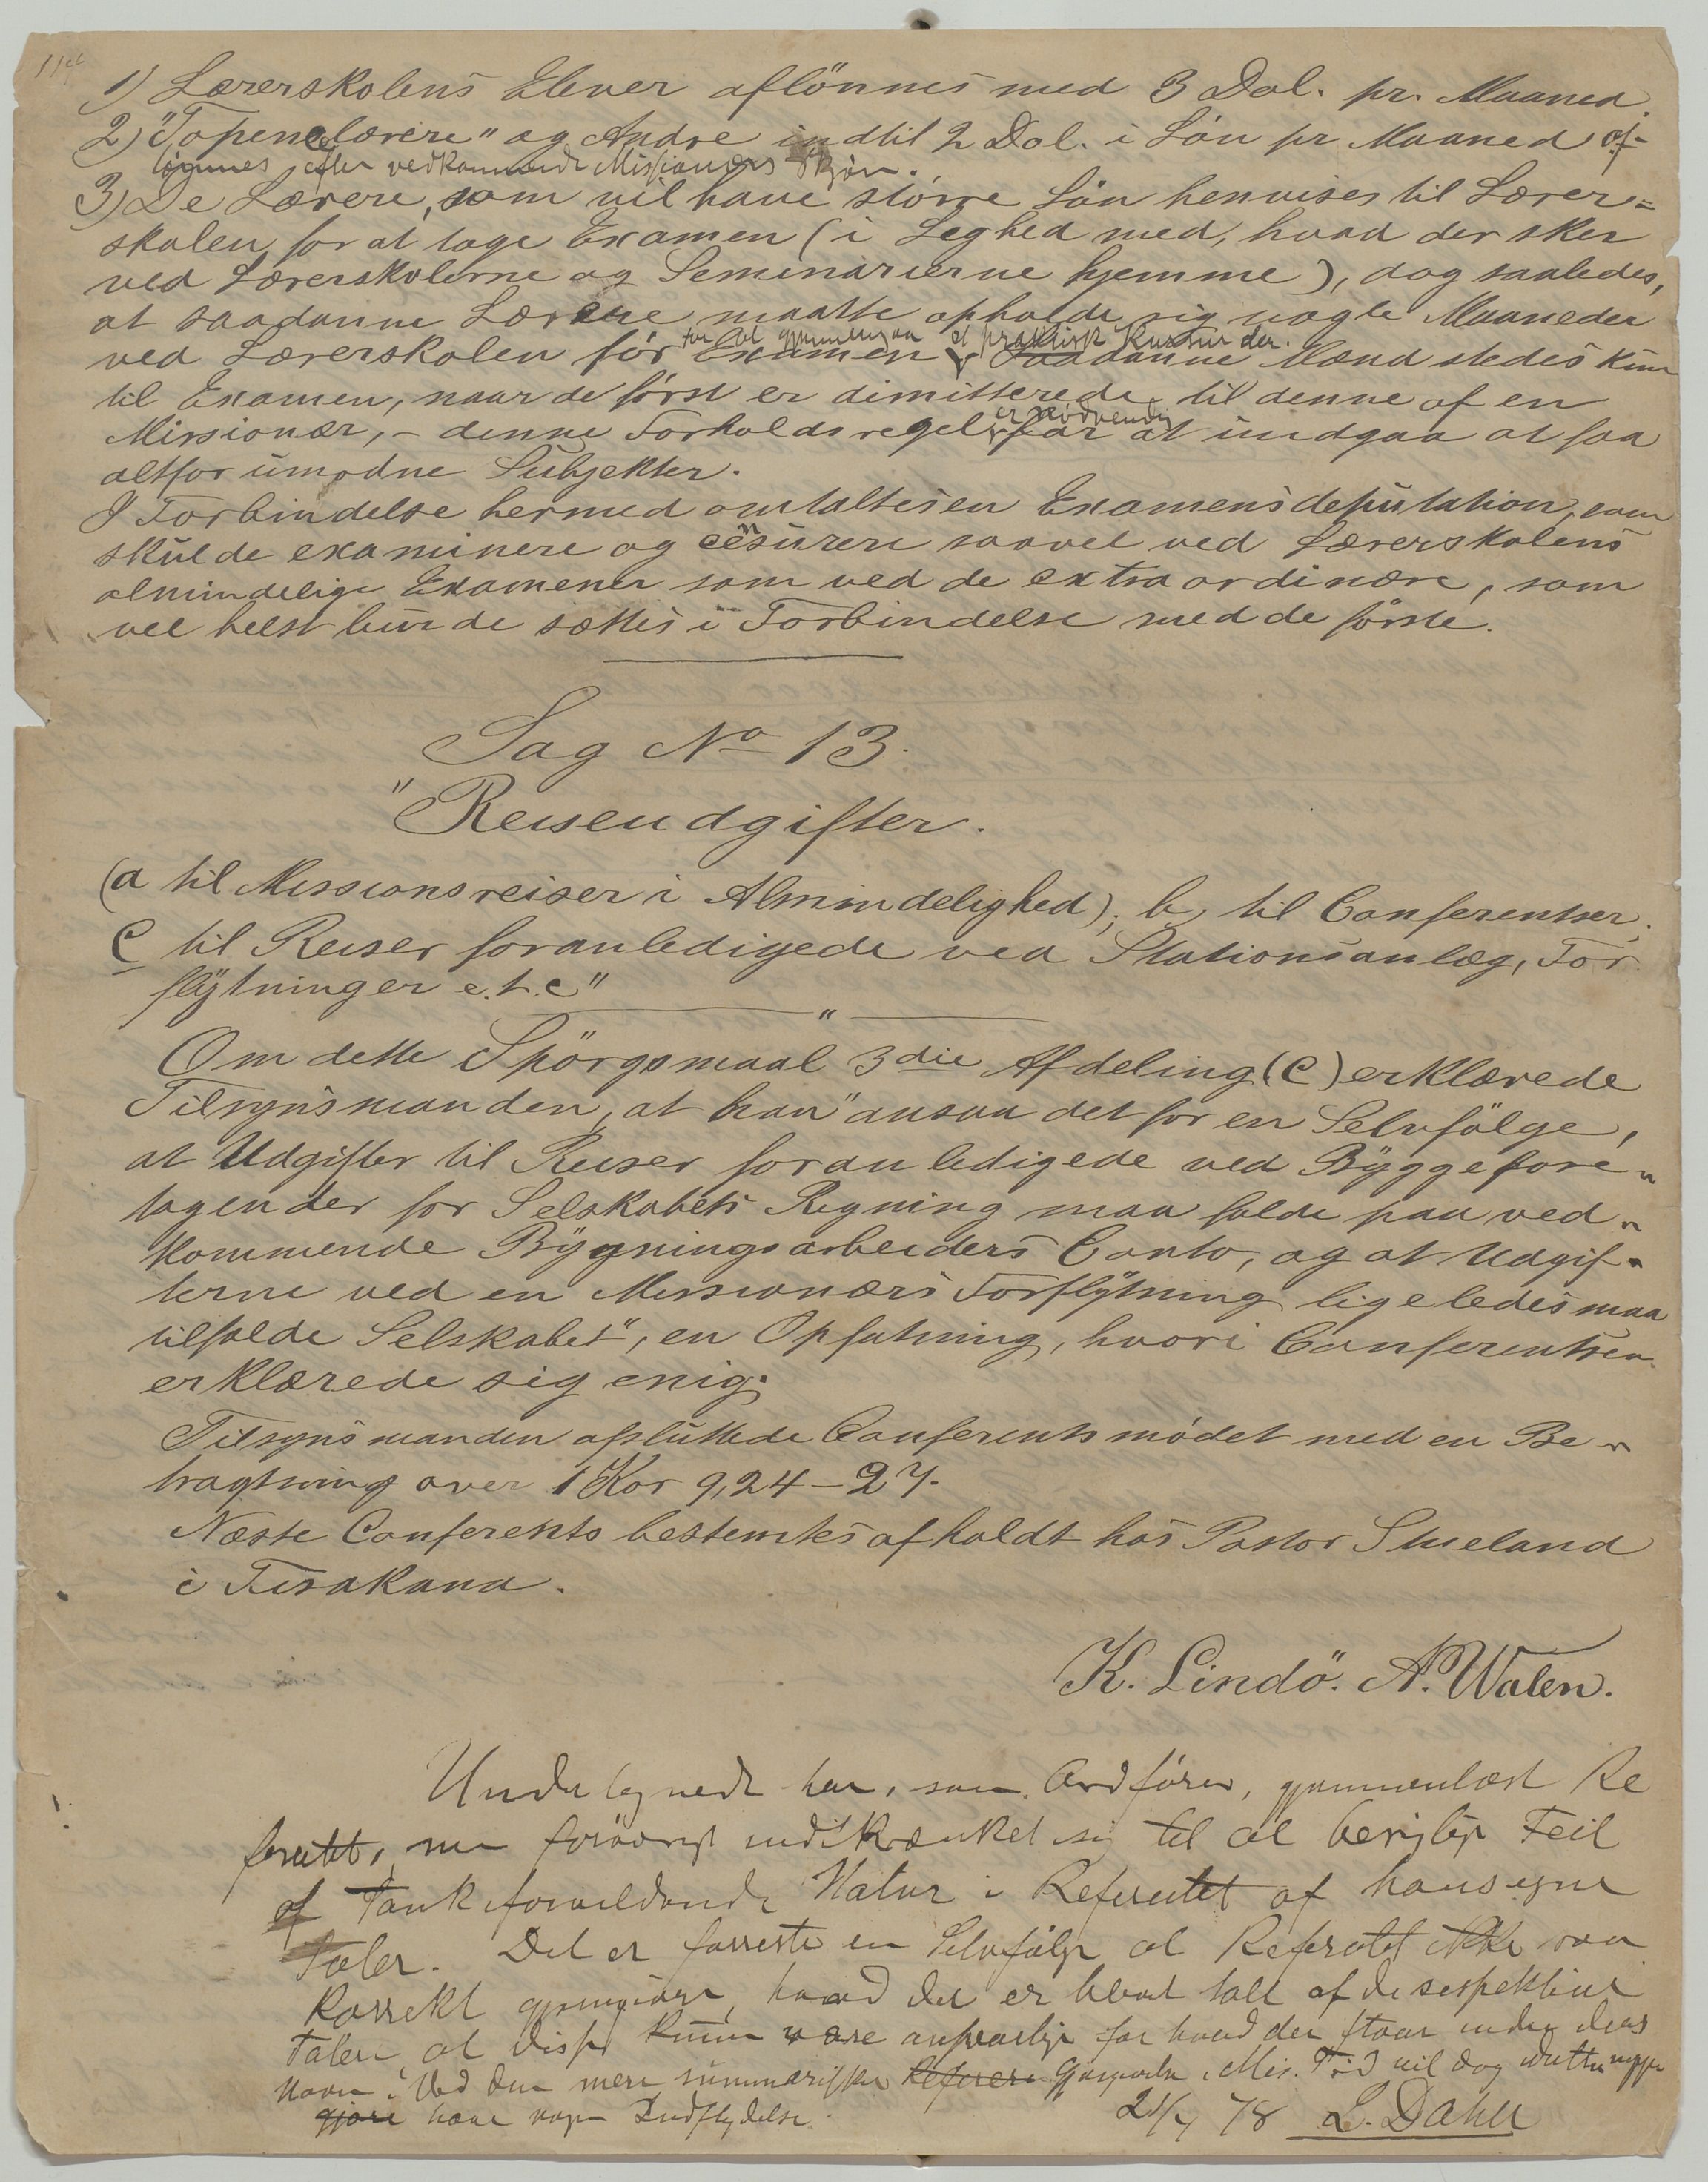 1) Lærerskolens Elever aflönnes med 3 Dal. pr. Maaned.
2) "Topenelærere" og Andre indtil 2 Dol. i Lön pr Maaned af-
lönnes efter vedkommende Missionærs Skjön.
3) De Lærere, som vil have större Lön henvises til Lærer=
skolen for at tage Examen (i Leghed med, hvad der sker
ved Lærerskolerne og Seminarierne hjemme), dog saaledes,
at saadanne Lærere maatte opholde sig nogle Maaneder
ved Lærerskolen för Examen for at gjennemgaa et praktisk Kursur der. Saadanne Mænd stedes kun
til Examen, naar de först er dimitterede til denne af en
Missionær, - denne Forholdsregel er nödvendig for at undgaa at faa
altfor umodne Subjekter.
I Forbindelse hermed omtaltes en Examensdeputation, som
skulde examinere og censurere saavel ved Lærerskolens
almindelige Examener som ved de extraordinære, som
vel helst burde sættes i Forbindelse med de förste.
Sag No 13.
"Reiseudgifter.
(a til Missionsreiser i Almindelighed); b, til Conferentser,
c til Reiser foranledigede ved Stationsanlæg, For
flytninger e.t.c"
Om dette Spörgsmaal 3die Afdeling (c) erklærede
Tilsynsmanden, at han "ansaa det for en Selvfölge,
at Udgifter til Reiser foranledigede ved Byggefore=
tagender for Selskabets Regning maa falde paa ved=
kommende Bygningsarbeiders Conto, og at Udgif=
terne ved en Missionærs Forflytning ligeledes maa
tilfalde Selskabet", en Opfatning, hvori Conferentsen
erklærede sig enig.
Tilsynsmanden afsluttede Conferentsmödet med en Be=
tragtning over 1 Kor 9,24-27.
Næste Conferents bestemtes afholdt hos Pastor Stueland
i Fisakana.
K. Lindö. A. Walen.
Undertegnede har, som Ordförer, gjennemlæst Re
feratet, men forövrigt indskrænket sig til at berigtige Feil
af Tankeforvildende Natur i Referatet af hans egne
Taler. Det er forresten en Selvfölge at Referatet ikke saa
korrekt gjengiver, hvad der er blevet talt af de respektive
Talere, at disse kunne være ansvarlige for hvad der staar under deres
Navn. Ved den mere summariske Referere Gjengivelse i Mis. Tid vil dog dette neppe
gjöre have nogen Indflydelse.
21/7 78 L. Dahle